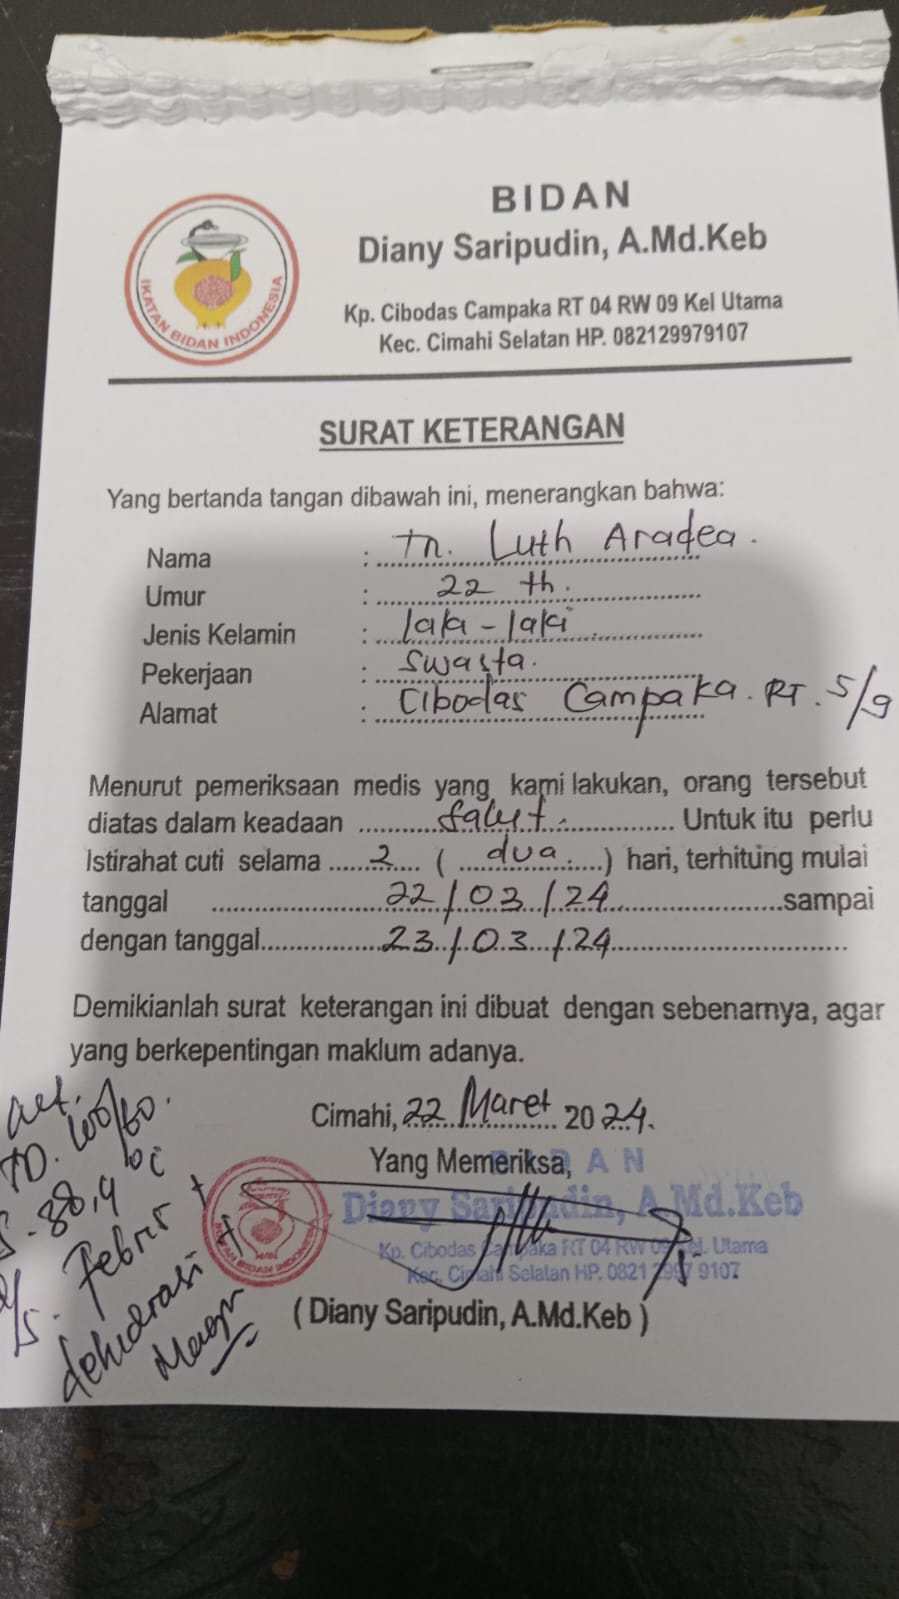 IKATAN BIDAN INDONESIA
BIDAN
Diany Saripudin, A.Md.Keb
Kp. Cibodas Campaka RT 04 RW 09 Kel Utama
Kec. Cimahi Selatan HP. 082129979107
SURAT KETERANGAN
Yang bertanda tangan dibawah ini, menerangkan bahwa:
Nama : Tn. Luth Aradea.
Umur : 22 th.
Jenis Kelamin : laki-laki
Pekerjaan : Swasta.
Alamat : Cibodas Campaka. RT. 5/9
Menurut pemeriksaan medis yang kami lakukan, orang tersebut
diatas dalam keadaan ........ Untuk itu perlu
Istirahat cuti selama 2 ( dua ) hari, terhitung mulai
tanggal 22/03/24 sampai
dengan tanggal 23/03/24
Demikianlah surat keterangan ini dibuat dengan sebenarnya, agar
yang berkepentingan maklum adanya.
Cimahi, 22 Maret 2024.
Yang Memeriksa,
BIDAN
Diany Saripudin, A.Md.Keb
Kp. Cibodas Campaka RT 04 RW 09 Kel. Utama
Kec. Cimahi Selatan HP. 0821 2997 9107
( Diany Saripudin, A.Md.Keb )
TD. 100/60.
S. 38,9 °C
Febris +
dehidrasi +
IKATAN BIDAN INDONESIA